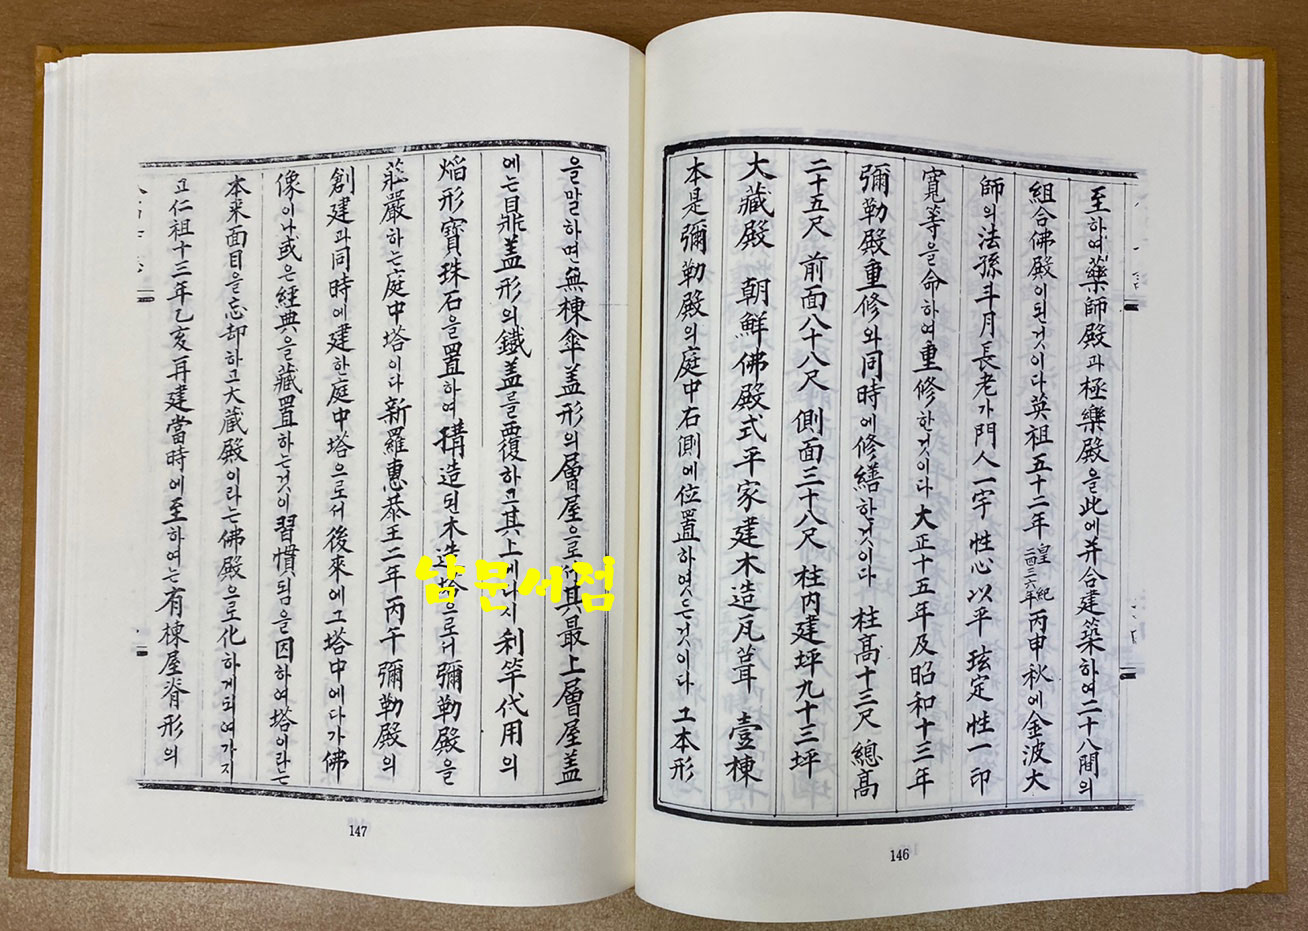 至하여藥師殿과極樂殿을此에并合建築하여二十八間의
組合佛殿이된것이다英祖五十二年 皇紀二四三六年 丙申秋에金波大
師의法孫斗月長老가門人一宇 性心以平 玹定性一印
寬等을命하여重修한것이다大正十五年及昭和十三年
彌勒殿重修와同時에修繕하것이다 柱高十三尺 總高
二十五尺 前面八十八尺 側面三十八尺 柱内建坪九十三坪
大藏殿 朝鮮佛殿式平家建木造瓦葺 壹棟
本是彌勒殿의庭中右側에位置하엿든것이다 그本形
146
을말하면無棟傘盖形의層屋으로서其最上層屋盖
에는鼎盖形의鐵盖를覆하고其上에다시刹竿代用의
焰形寶珠石을置하여構造된木造塔으로서彌勒殿을
莊嚴하는庭中塔이다新羅惠恭王二年丙午彌勒殿의
創建과同時에建한庭中塔으로서後來에그塔中에다가佛
像이나或은經典을藏置하는것이習慣됨을因하여塔이라는
本来面目을忘却하고大藏殿이라는佛殿으로化하게되여가지
고仁祖十三年乙亥再建當時에至하여는有棟屋脊形의
147
남문서점